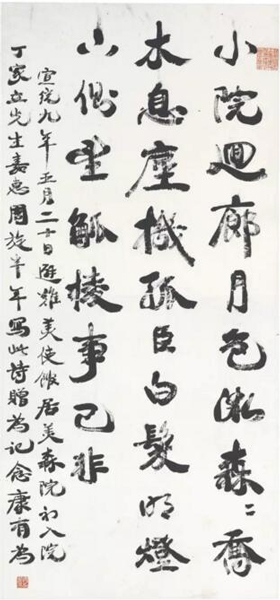 小院迴廊月色微森〻喬
木息塵機孤臣白髮明燈
下側望觚棱事已非
宣統九年五月二十日避難美使館居美森院初入院
丁家立先生嘉惠周旋半年寫此詩贈為記念康有為